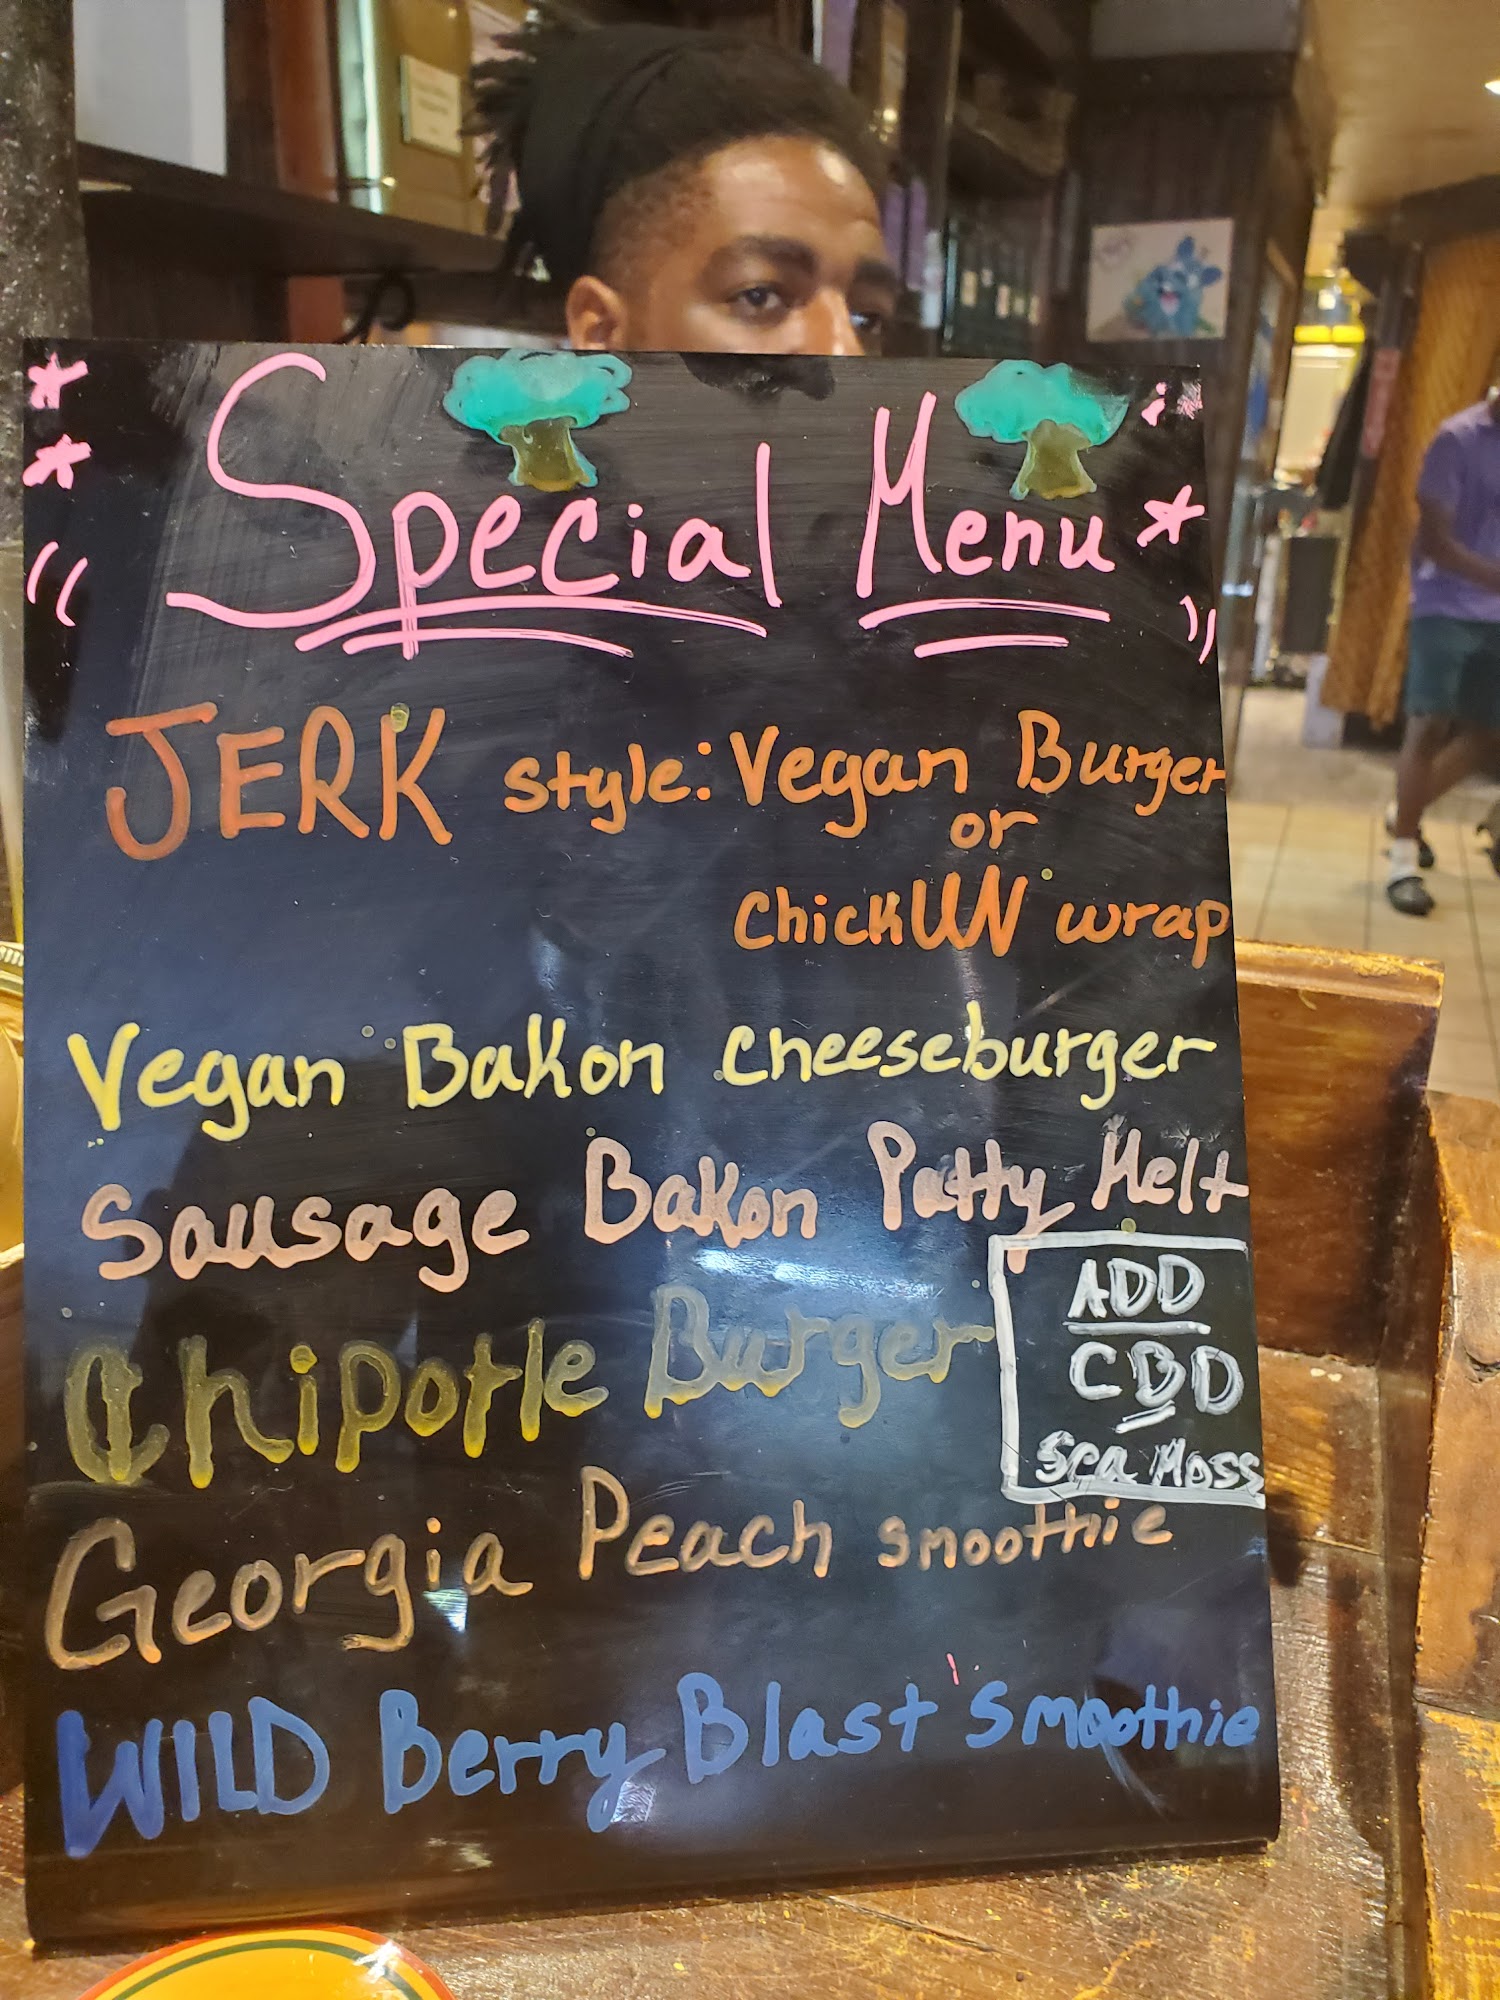 Special Menu
JERK style: Vegan Burger
or
chickUN wrap
Vegan BaKon cheeseburger
Sausage BaKon Patty Melt
Chipotle Burger
ADD
CBD
Sea Moss
Georgia Peach smoothie
WILD Berry Blast Smoothie